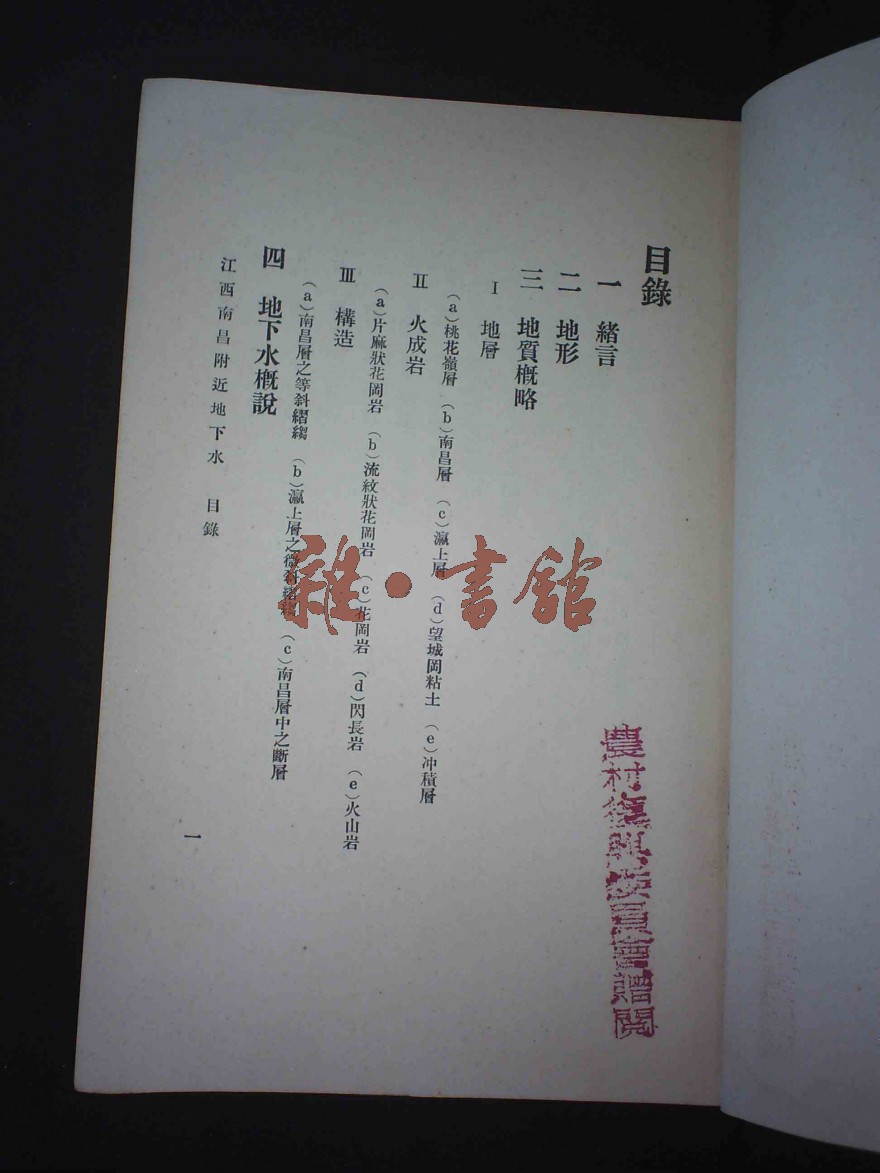 目錄
一 緒言
二 地形
三 地質概略
I 地層
(a)桃花嶺層 (b)南昌層 (c)瀛上層 (d)望城岡粘土 (e)冲積層
II 火成岩
(a)片麻狀花岡岩 (b)流紋狀花岡岩 (c)花岡岩 (d)閃長岩 (e)火山岩
III 構造
(a)南昌層之等斜褶縐 (b)瀛上層之微斜褶縐 (c)南昌層中之斷層
四 地下水概說
江西南昌附近地下水 目錄
一
雜·書館
農村復興委員會贈閱